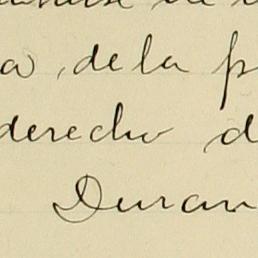 a, de la p
derecho d
Duran